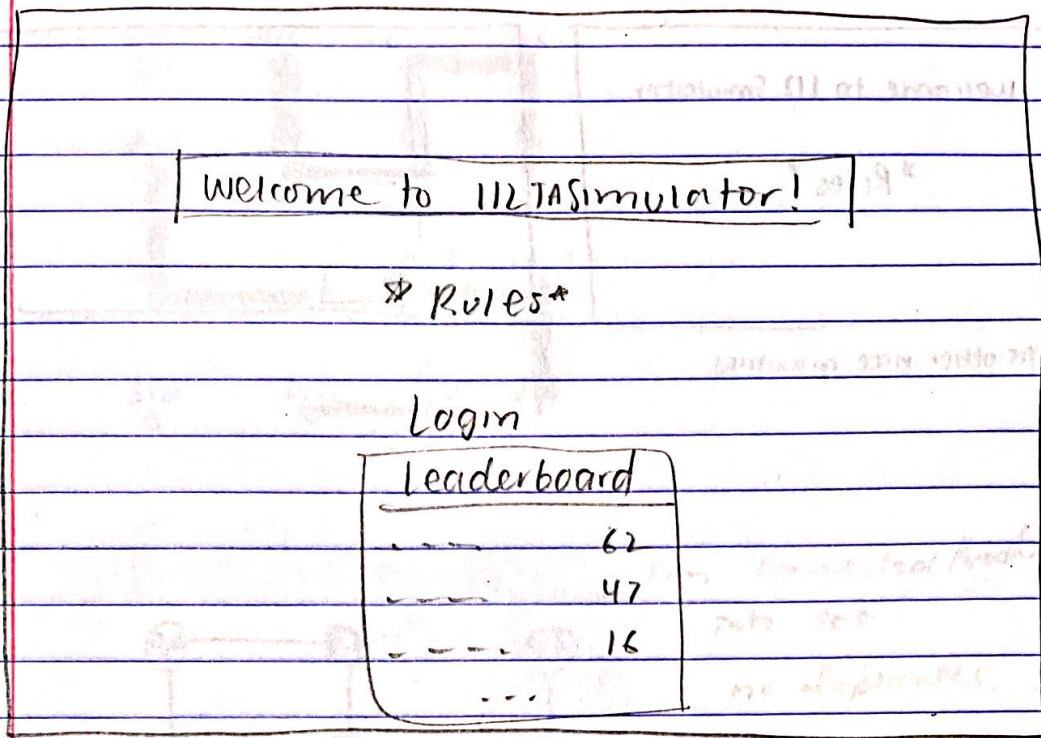 Welcome to 112TASimulator!
* Rules*
Login
Leaderboard
---- 62
---- 47
---- 16
...